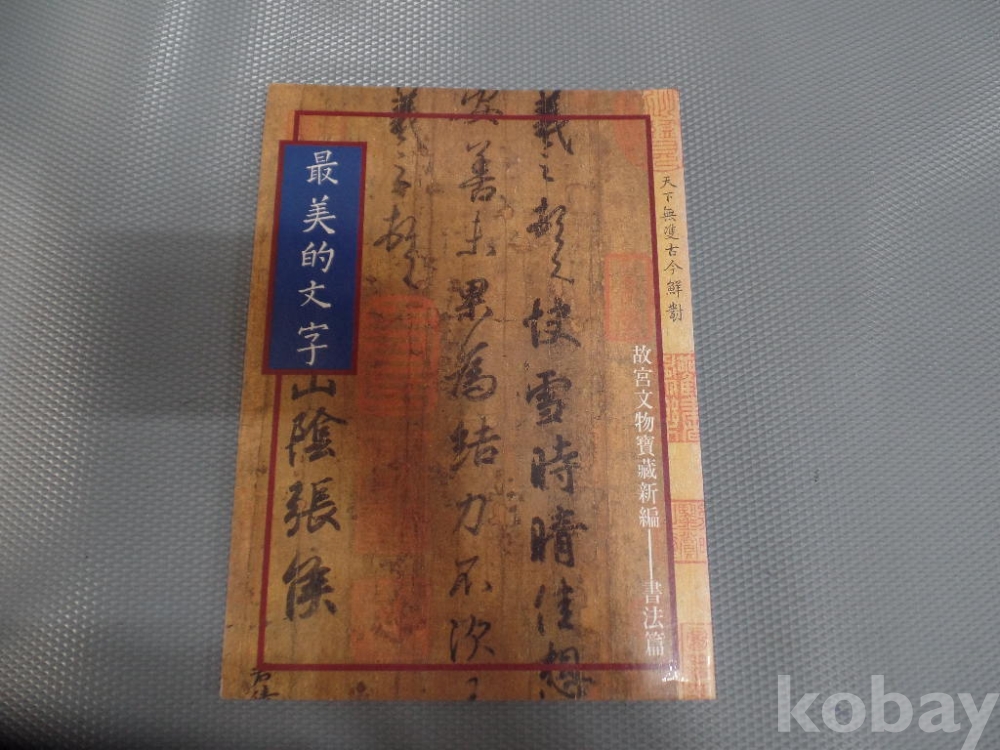 天下無雙古今鮮對
故宮文物寶藏新編——書法篇
羲之頓首快雪時晴佳想
安善未果為結力不次王
羲之頓首
山陰張侯
最美的文字
kobay